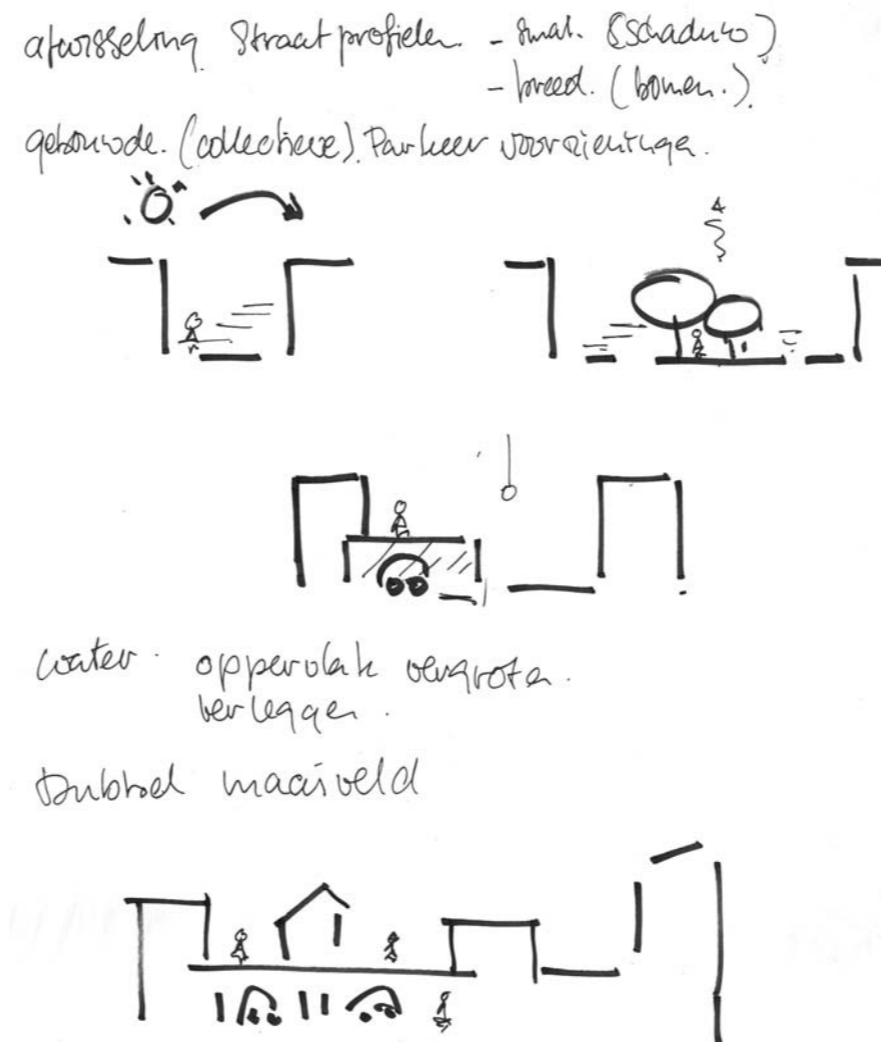 afwisseling straatprofielen. - smal. (schaduw)
- breed. (bomen.)
gebouwde. (collectieve). Parkeer voorzieningen.
water. oppervlak vergroten.
verleggen.
Dubbel maaiveld